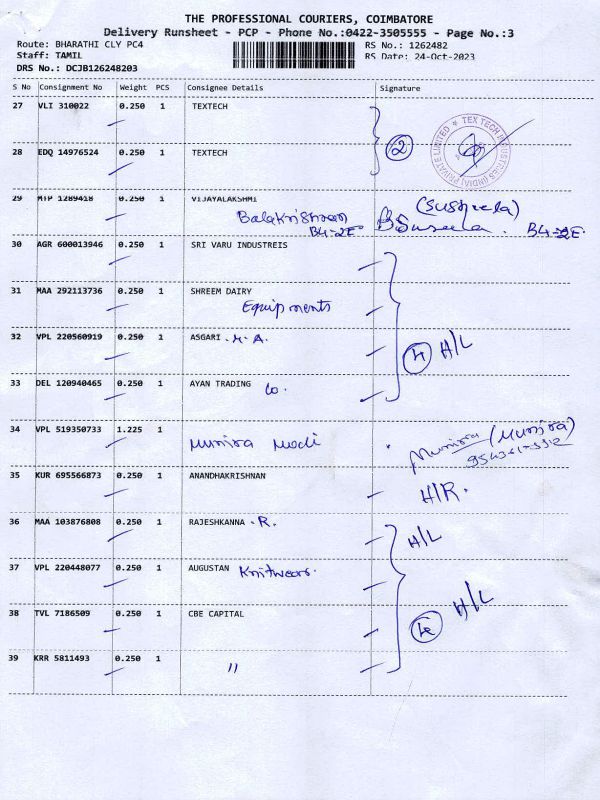 THE PROFESSIONAL COURIERS, COIMBATORE
Delivery Runsheet - PCP - Phone No.:0422-3505555 - Page No.:3
Route: BHARATHI CLY PC4 RS No.: 1262482
Staff: TAMIL RS Date: 24-Oct-2023
DRS No.: DCJB126248203
S No Consignment No Weight PCS Consignee Details Signature
27 VLI 310022 0.250 1 TEXTECH
2
TEX TECH INDUSTRIES (INDIA) PRIVATE LIMITED
28 EDQ 14976524 0.250 1 TEXTECH
29 MTP 1289418 0.250 1 VIJAYALAKSHMI
Balakrishnan (Susheela)
B4-2E B. Suseela. B4-2E.
30 AGR 600013946 0.250 1 SRI VARU INDUSTREIS
31 MAA 292113736 0.250 1 SHREEM DAIRY
Equipments
32 VPL 220560919 0.250 1 ASGARI . M. A.
4 H/L
33 DEL 120940465 0.250 1 AYAN TRADING Co.
34 VPL 519350733 1.225 1 Munira Modi
Munira (Munira)
35 KUR 695566873 0.250 1 ANANDHAKRISHNAN
H/R.
36 MAA 103876808 0.250 1 RAJESHKANNA . R.
H/L
37 VPL 220448077 0.250 1 AUGUSTAN Knitwears.
38 TVL 7186509 0.250 1 CBE CAPITAL
H/L
39 KRR 5811493 0.250 1 "